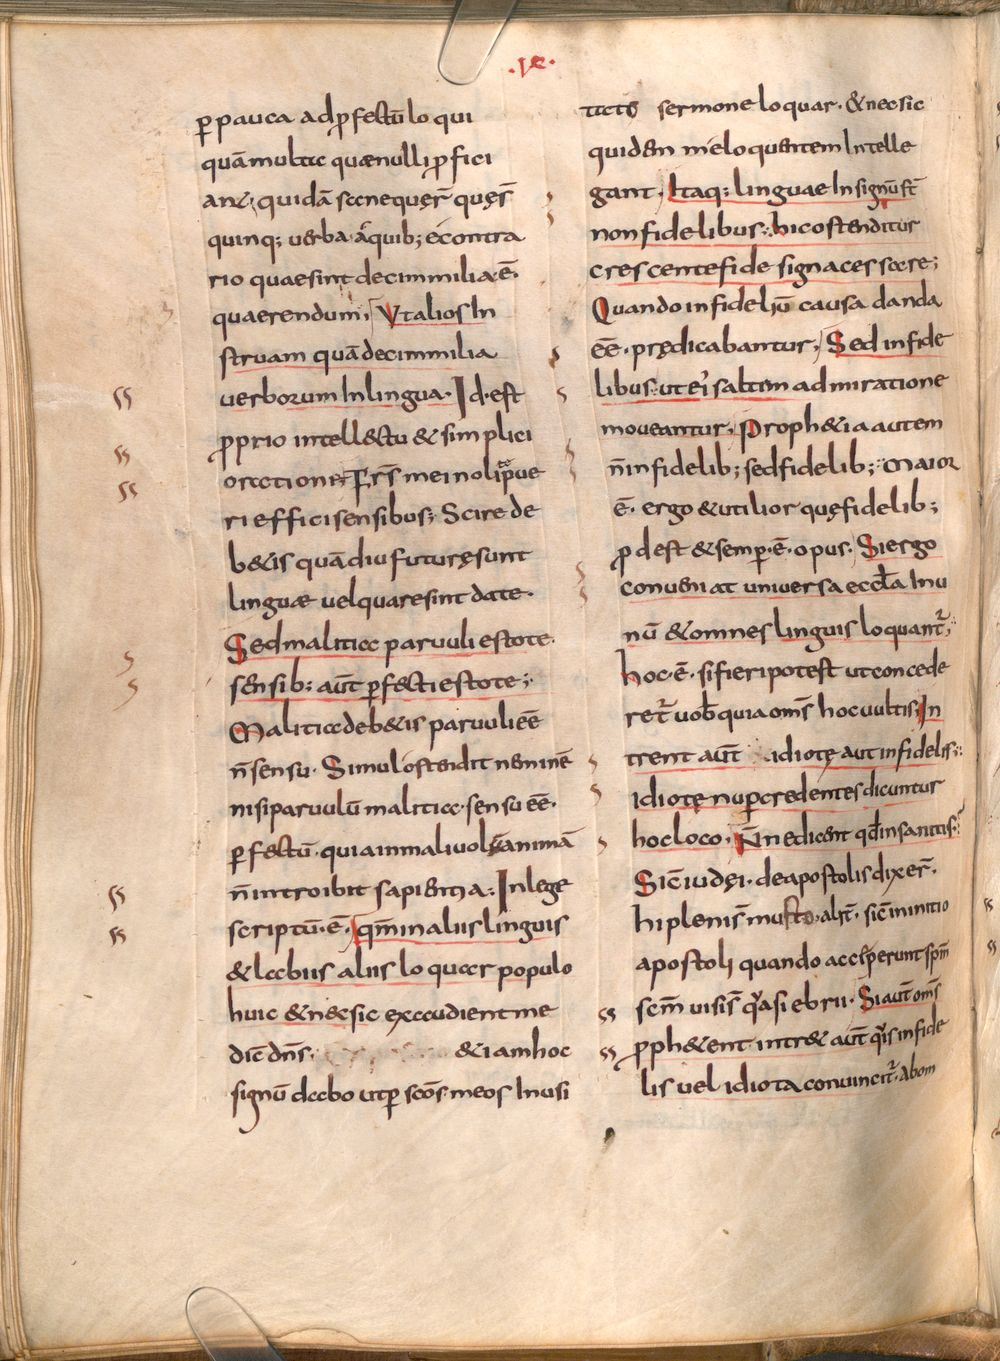 .IX.
ꝑ pauca ad ꝓfectū lo qui
quā multa quae nulli ꝓ fici
ant; quidā sane quęr̄ quęs̄
quinq; uerba a quib; e contra
rio quae sint decim milia ē.
quaerendum; Vt alios In
struam quā decim milia
uerborum In lingua. Id. est
ꝓprio intellectu & simplici
oratione Frs̄ mei noli pue
ri effici sensibus; Scire de
b&is quādiu futurę sunt
linguae uel quare sint datae.
Sed malitiae paruuli estote.
sensib; aūt ꝑfecti estote;
Malitiae deb&is paruuli ēē
n̄ sensu. Simul ostendit neminē
nisi paruulū malitiae. sensu ēē.
ꝑfectū. quia in maliuolā animā
n̄ introibit sapientia. In lege
scriptū. ē. qm̄ in aliis linguis
& labiis aliis loquar populo
huic & nec sic exaudient me
dic̄ dn̄s. & iam hoc
signū dabo ut ꝑ scōs meos In usi
tato sermone loquar. & nec sic
quidem me loquentem Intelle
gant. Itaq; linguae In signū st̄
non fidelibus. hic ostenditur
crescente fide signa cessare;
Quando infideliū causa danda
ēē. prędicabantur, Sed infide
libus. ut eis saltem admiratione
moueantur. Proph&ia autem
n̄ infidelib; sed fidelib; Maior
ē. ergo & utilior quę fidelib;
ꝓdest & semꝑ. ē. opus. Si ergo
conueniat uniuersa eccl̄a In u
nū & omnes linguis loquant̄.
hoc. ē. si fieri potest ut concede
ret̄ uob̄ quia oms̄ hoc uultis. In
trent aūt idiotę aut infideles.
idiotę nuꝑ credentes dicuntur
hoc loco. Nn̄e dicent qd̄ insanitis.
Sic̄ iudęi. de apostolis dixer̄.
hi pleni s̄ musto. alit̄. sic̄ in initio
apostoli quando acceperunt spm̄
scm̄ uisi s̄ quasi ebrii. Si aūt oms̄
ꝓph&ent. intr& aūt quis infide
lis uel idiota conuincit̄. ab om